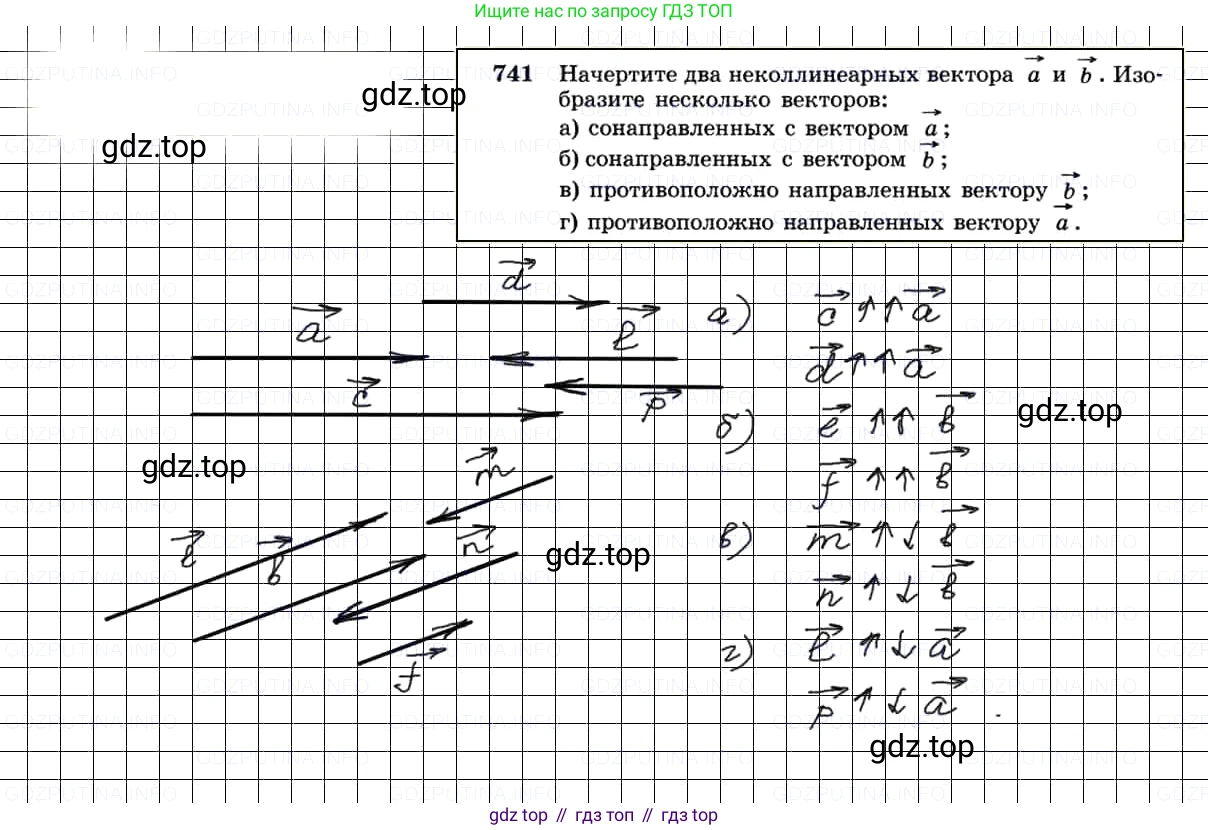 Ищите нас по запросу ГДЗ ТОП
741 Начертите два неколлинеарных вектора a и b. Изо-
бразите несколько векторов:
а) сонаправленных с вектором a;
б) сонаправленных с вектором b;
в) противоположно направленных вектору b;
г) противоположно направленных вектору a.
gdz.top
gdz.top
d
a
ℓ
c
p
а) c ↑↑ a
d ↑↑ a
б) e ↑↑ b
f ↑↑ b
в) m ↑↓ b
n ↑↓ b
г) ℓ ↑↓ a
p ↑↓ a
gdz.top
gdz.top
m
e
b
n
gdz.top
f
gdz.top
gdz top // гдз топ // gdz top
GDZPUTINA.INFO